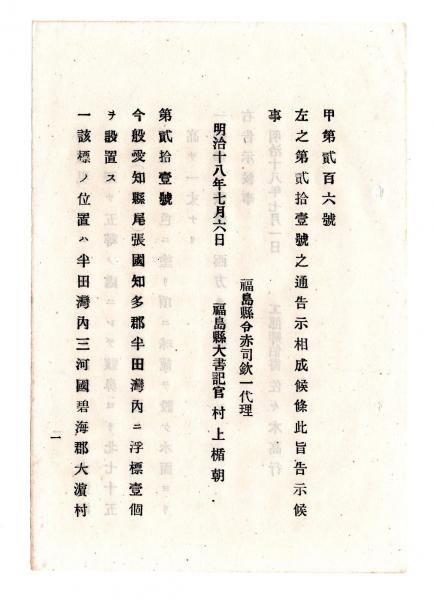 甲第貳百六號
左之第貳拾壹號之通告示相成候條此旨告示候
事
福島縣令赤司欽一代理
明治十八年七月六日　福島縣大書記官　村上楯朝
第貳拾壹號
今般愛知縣尾張國知多郡半田灣內ニ浮標壹個
ヲ設置ス
一該標ノ位置ハ半田灣內三河國碧海郡大濵村
一